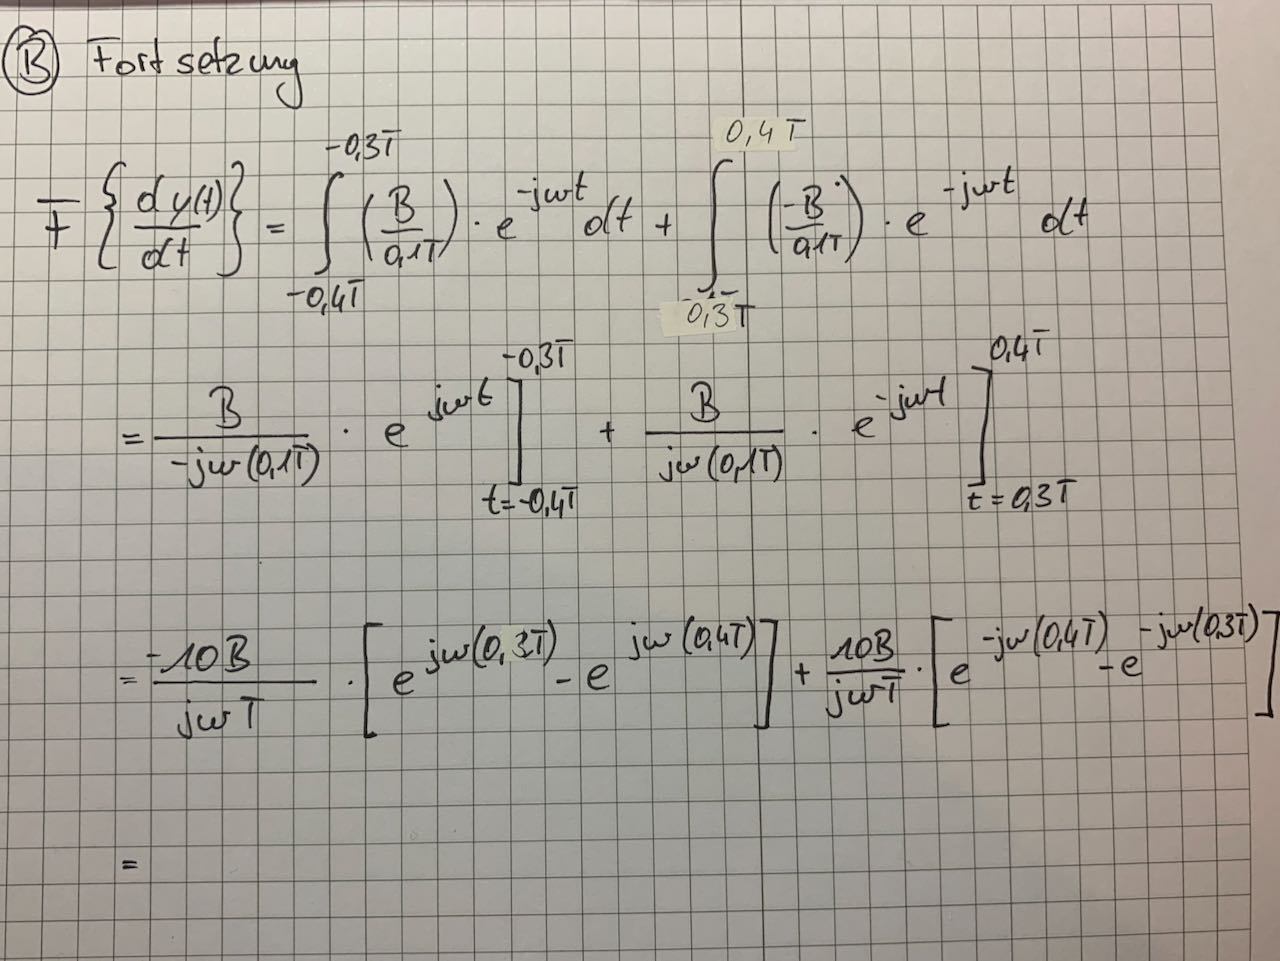 Ⓑ Fortsetzung
F { dy(t)/dt } = ∫_{-0,4T}^{-0,3T} (B/0,1T) · e^{-jωt} dt + ∫_{0,3T}^{0,4T} (-B/0,1T) · e^{-jωt} dt
= B/(-jω(0,1T)) · e^{jωt} ]_{t=-0,4T}^{-0,3T} + B/(jω(0,1T)) · e^{-jωt} ]_{t=0,3T}^{0,4T}
= -10B/(jωT) · [ e^{jω(0,3T)} - e^{jω(0,4T)} ] + 10B/(jωT) · [ e^{-jω(0,4T)} - e^{-jω(0,3T)} ]
=